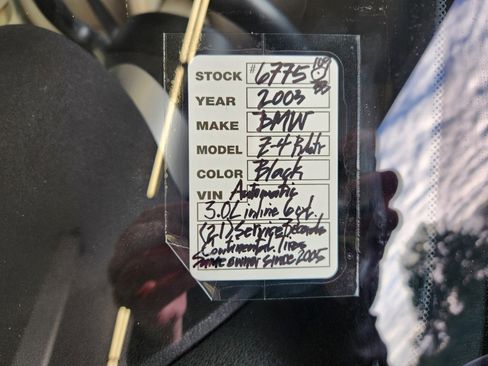 STOCK # 6775
YEAR 2003
MAKE BMW
MODEL Z-4 Rdstr
COLOR Black
VIN Automatic
3.0L inline 6 cyl.
(21) Service Records
Continental Tires
Same owner since 2005